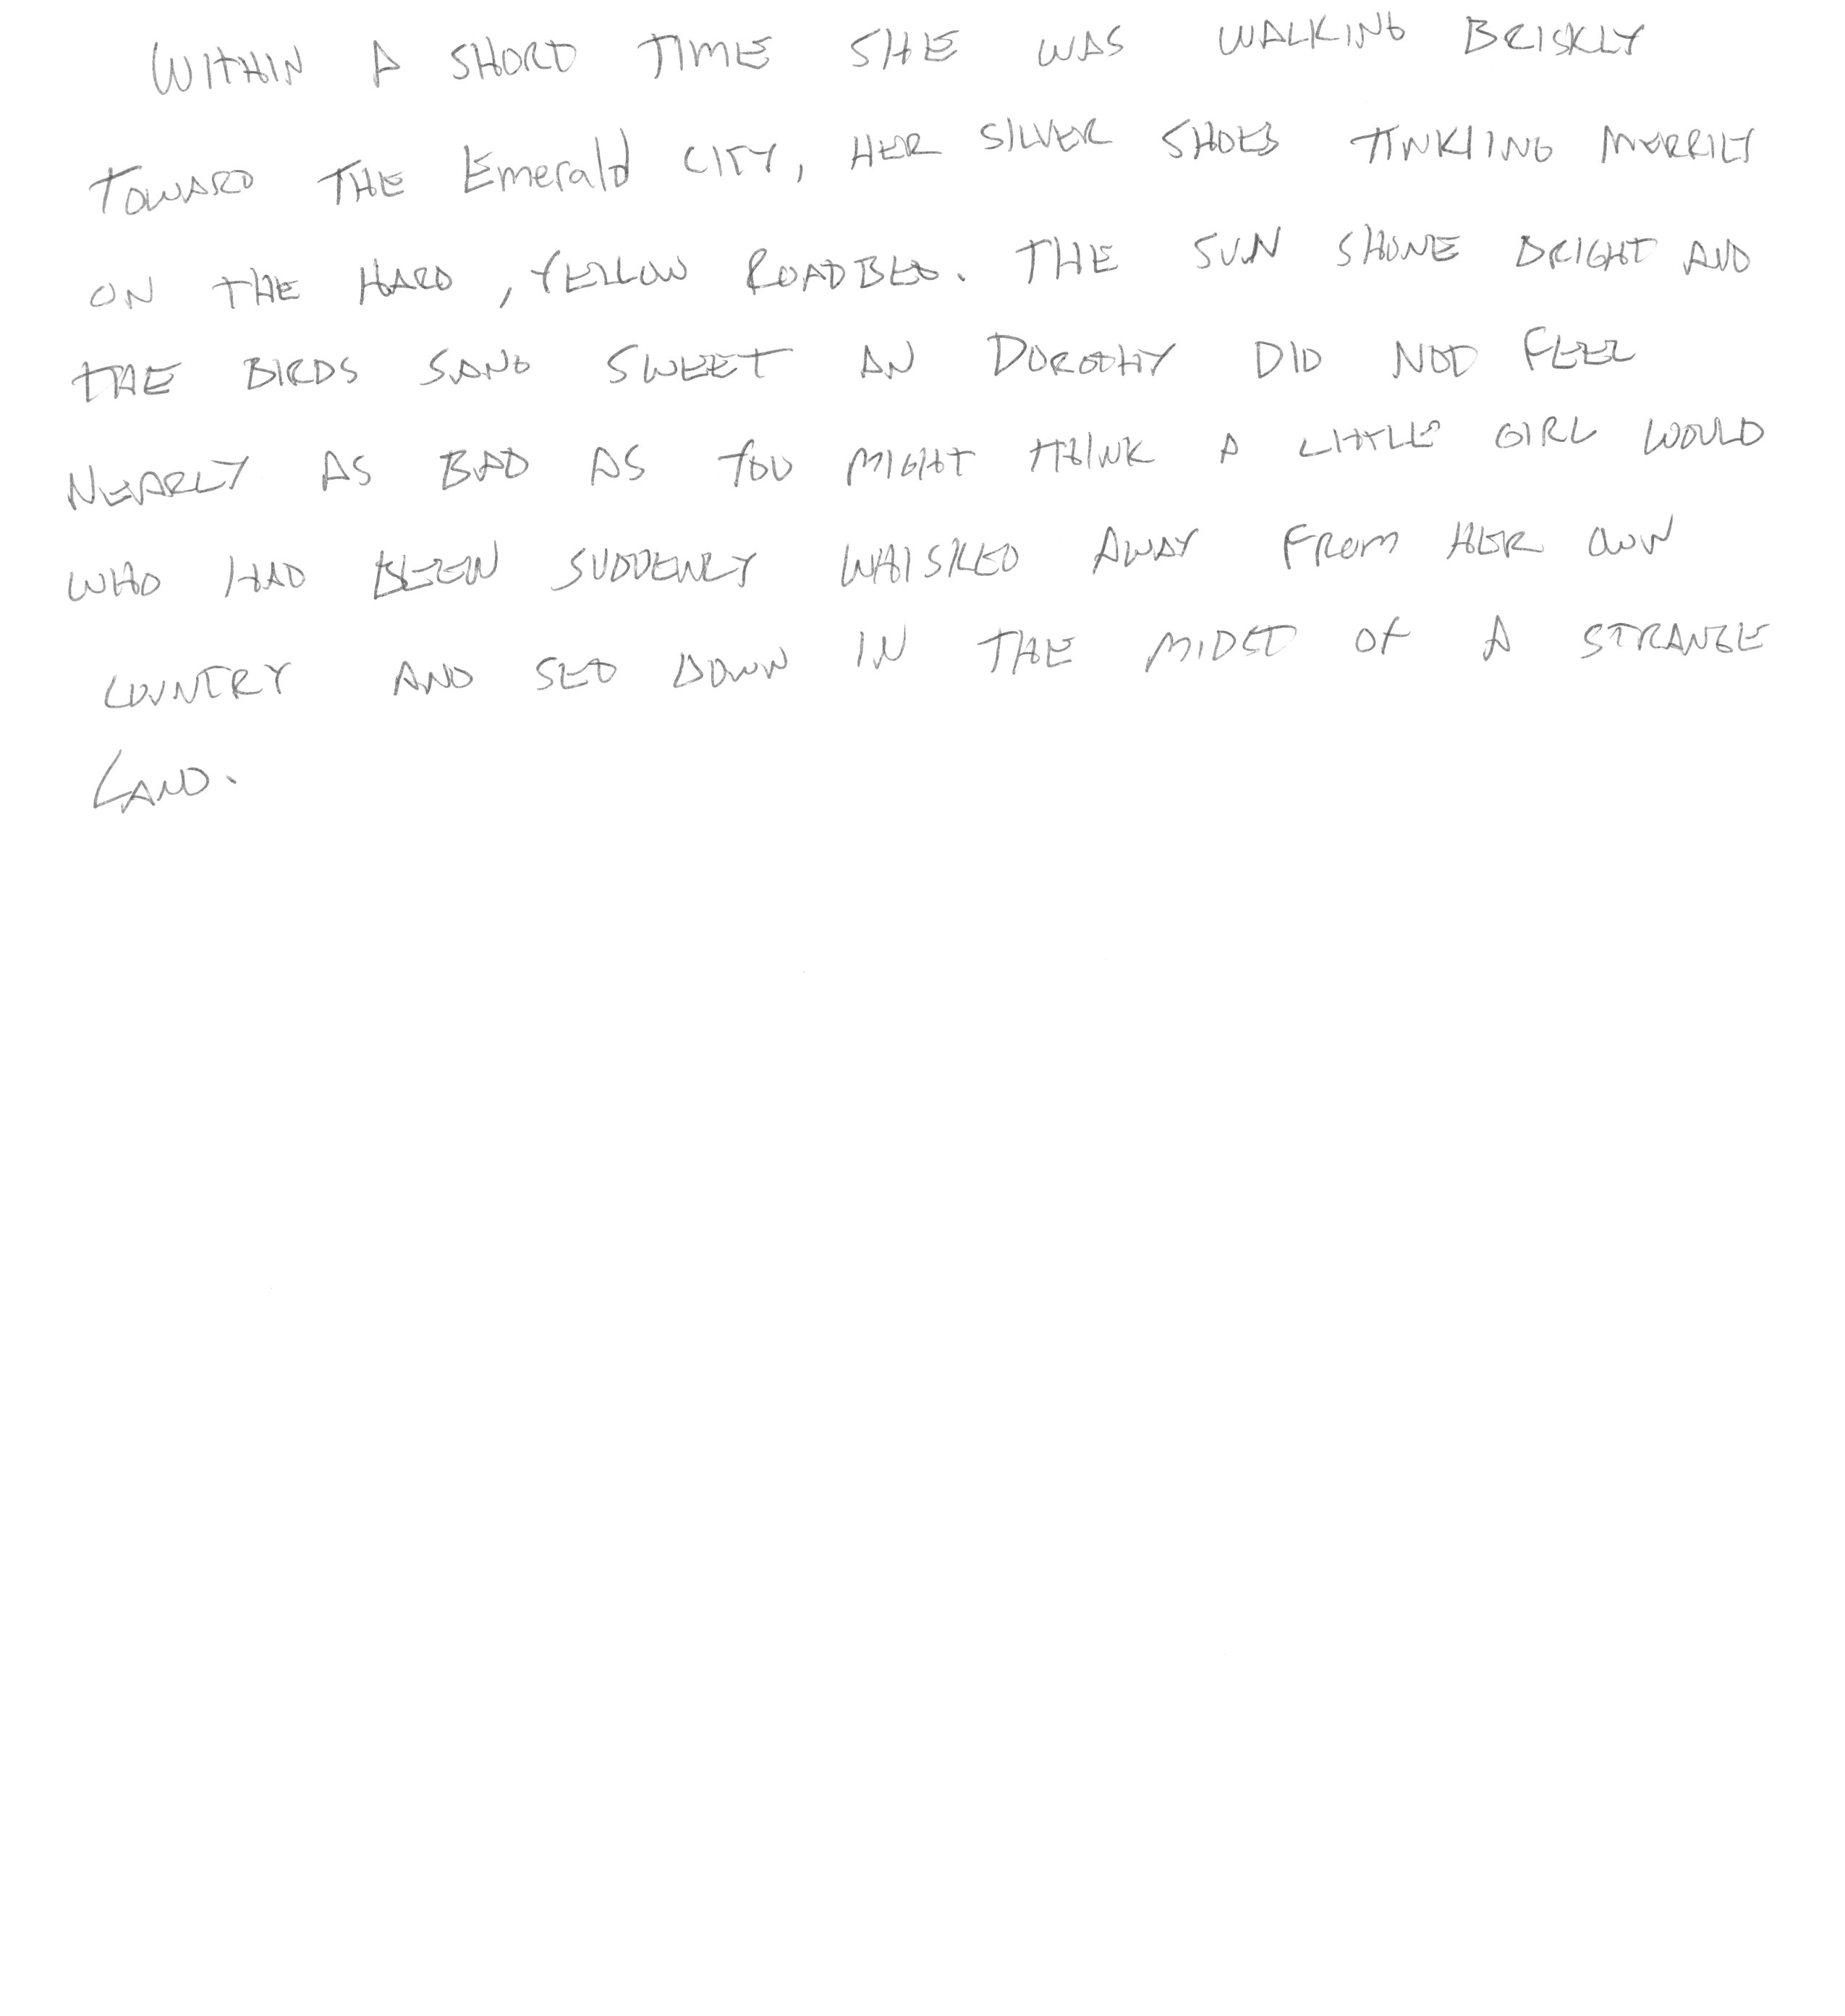 WITHIN A SHORT TIME SHE WAS WALKING BRISKLY
TOWARD THE Emerald CITY, HER SILVER SHOES TINKLING MERRILY
ON THE HARD, YELLOW ROADBED. THE SUN SHONE BRIGHT AND
THE BIRDS SANG SWEET AN DOROTHY DID NOT FEEL
NEARLY AS BAD AS YOU MIGHT THINK A LITTLE GIRL WOULD
WHO HAD BEEN SUDDENLY WHISKED AWAY FROM HER OWN
COUNTRY AND SET DOWN IN THE MIDST OF A STRANGE
LAND.